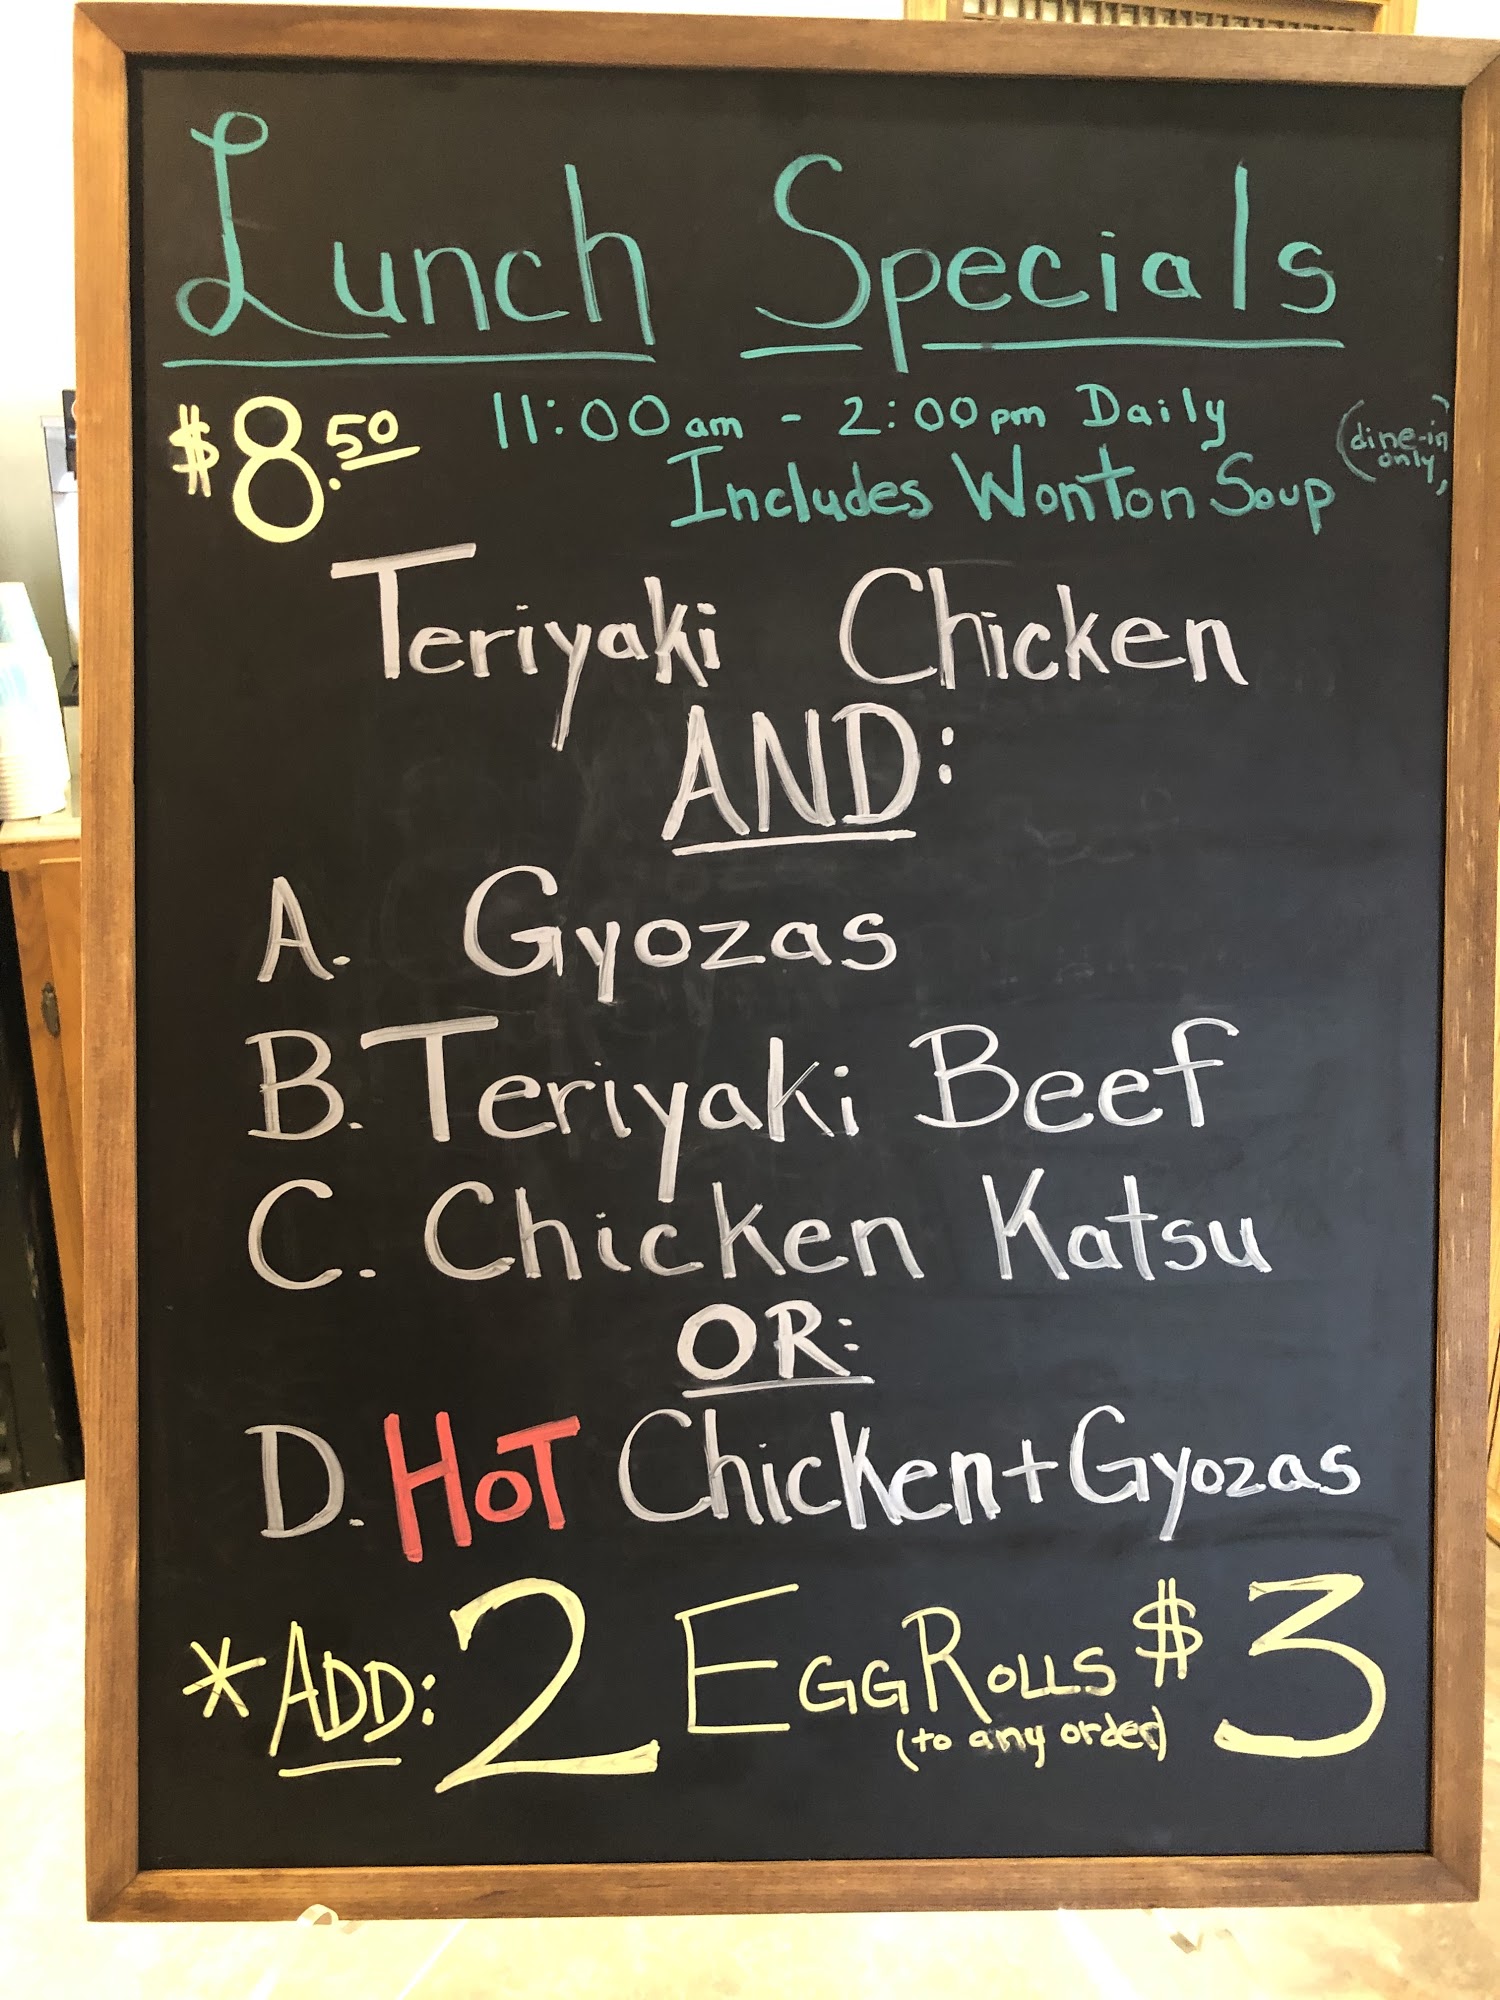 Lunch Specials
$8.50 11:00am - 2:00pm Daily
Includes Wonton Soup (dine-in only)
Teriyaki Chicken
AND:
A. Gyozas
B. Teriyaki Beef
C. Chicken Katsu
OR:
D. HOT Chicken + Gyozas
*ADD: 2 EGG ROLLS $3
(to any order)